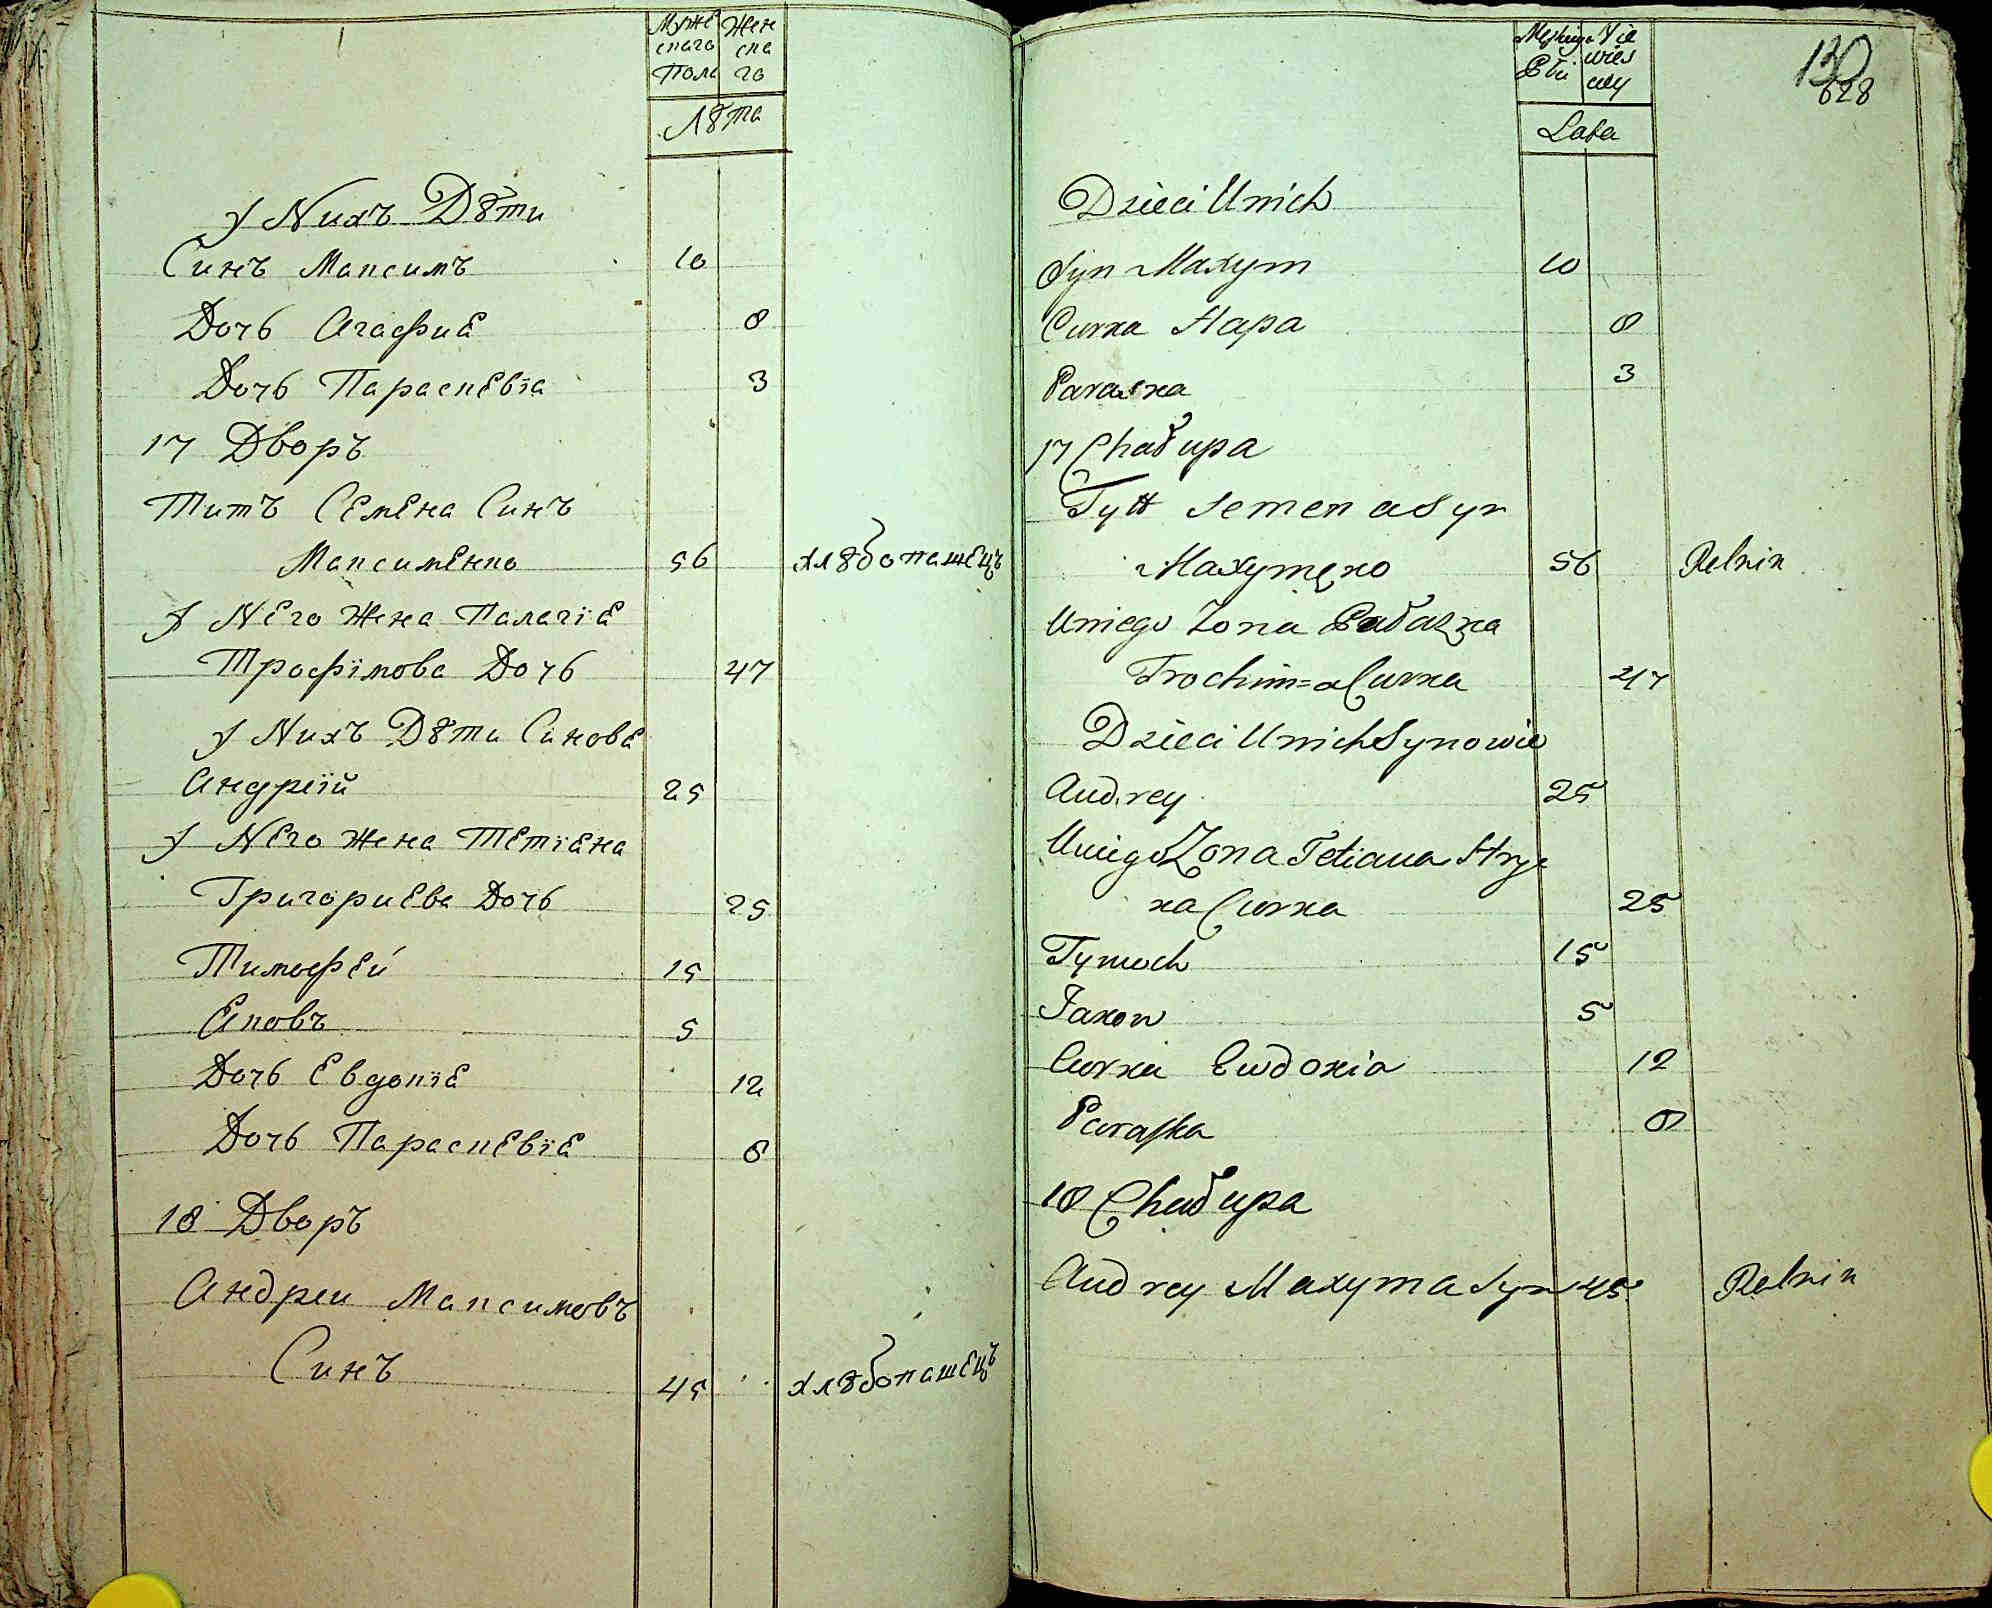 Муже Жен
скаго ска
Пола го
Лѣта
У Nихъ Дѣти
Синъ Максимъ 10
Дочь Агафиа 8
Дочь Параскевїа 3
17 Дворъ
Титъ Семена Синъ
Максименко 56 хлѣбопашецъ
У Nего Жена Палагїа
Трофїмова Дочь 47
У Nихъ Дѣти Синова
Андрїй 25
У Nего Жена Тетїана
Григориева Дочь 25
Тимофей 15
Яковъ 5
Дочь Евдокїа 12
Дочь Параскевїа 8
18 Дворъ
Андреи Максимовъ
Синъ 45 хлѣбопашецъ
130
628
Męskiey Nie
Płci wies
ciey
Lata
Dzieci Unich
Syn Maxym 10
Curka Hapa 8
Paraska 3
17 Chałupa
Tytt Semena Syn
Maxymęko 56 Rolnik
Uniego Zona Pałazka
Trochim=a Curka 47
Dzieci Unich Synowie
Andrey 25
Uniego Zona Tetiana Hryc
ka Curka 25
Tymoch 15
Jakow 5
Curka Ewdokia 12
Paraska 8
18 Chałupa
Andrey Maxyma Syn 45 Rolnik